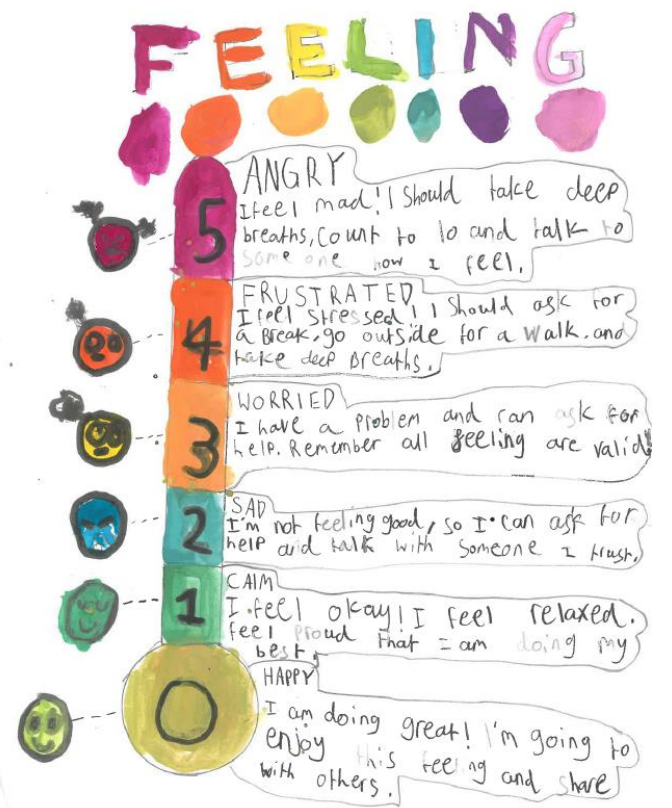 FEELING
5
ANGRY
I feel mad! I Should take deep
breaths, Count to 10 and talk to
some one how I feel.
4
FRUSTRATED
I feel stressed! I Should ask for
a Break, go outside for a Walk. and
take deep Breaths.
3
WORRIED
I have a Problem and can ask for
help. Remember all feeling are valid
2
SAD
I'm not feeling good, so I can ask for
help and talk with Someone I trust.
1
CAlM
I feel okay! I feel relaxed.
feel proud that I am doing my
best.
0
HAPPY
I am doing great! I'm going to
enjoy this feeling and share
with others.